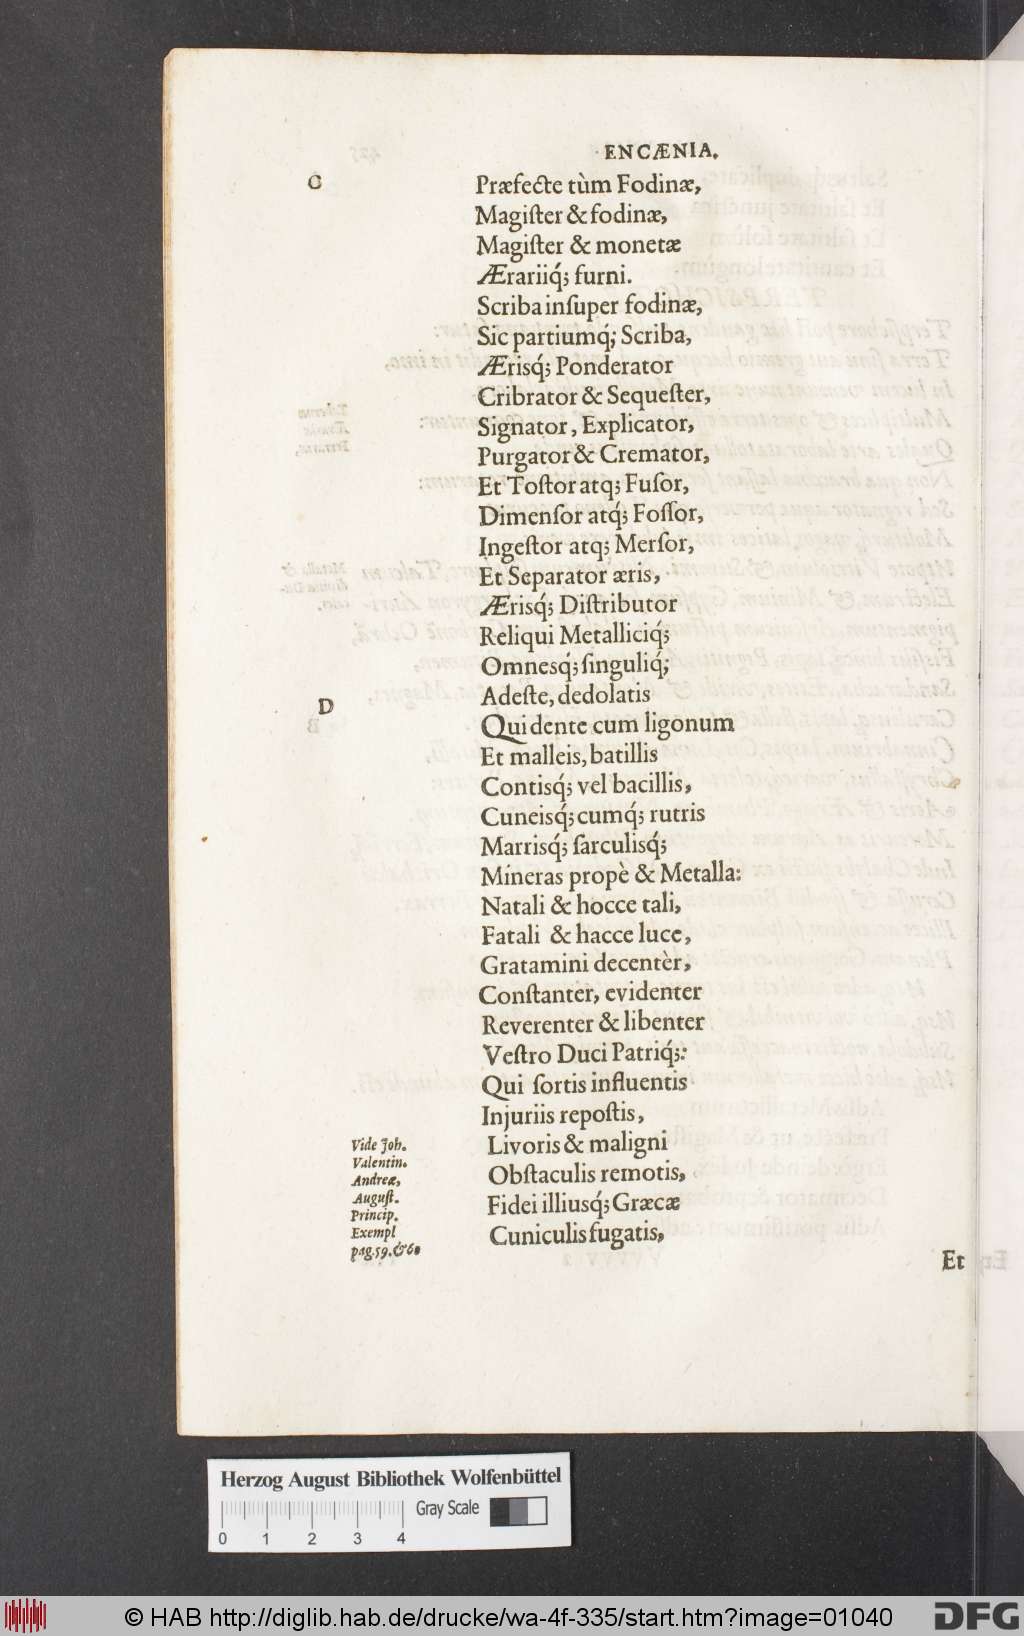 ENCÆNIA.
C
Præfecte tùm Fodinæ,
Magiſter & fodinæ,
Magiſter & monetæ
Ærariiq́; furni.
Scriba inſuper fodinæ,
Sic partiumq́; Scriba,
Ærisq́; Ponderator
Cribrator & Sequeſter,
Signator, Explicator,
Purgator & Cremator,
Et Toſtor atq; Fuſor,
Dimenſor atq́; Foſſor,
Ingeſtor atq; Merſor,
Et Separator æris,
Ærisq́; Diſtributor
Reliqui Metalliciq́;
Omnesq́; ſinguliq́;
Adeſte, dedolatis
D
Qui dente cum ligonum
Et malleis, batillis
Contisq́; vel bacillis,
Cuneisq́; cumq́; rutris
Marrisq́; ſarculisq́;
Mineras propè & Metalla:
Natali & hocce tali,
Fatali & hacce luce,
Gratamini decentèr,
Conſtanter, evidenter
Reverenter & libenter
Veſtro Duci Patriq́;:
Qui ſortis influentis
Injuriis repoſtis,
Livoris & maligni
Obſtaculis remotis,
Fidei illiusq́; Græcæ
Cuniculis fugatis,
Vide Joh.
Valentin.
Andreæ,
Auguſt.
Princip.
Exempl
pag. 59. & 60
Et
Herzog August Bibliothek Wolfenbüttel
Gray Scale
0 1 2 3 4
© HAB http://diglib.hab.de/drucke/wa-4f-335/start.htm?image=01040
DFG